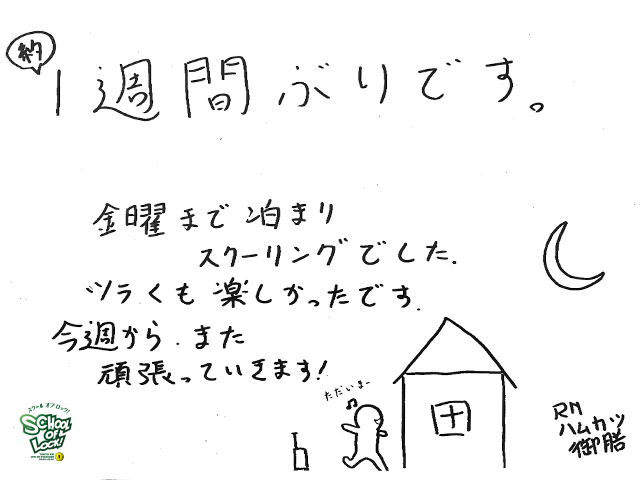 約
1週間ぶりです。
金曜まで泊まり
スクーリングでした.
ツラくも楽しかったです.
今週から.また
頑張っていきます!
ただいまー
RN
ハムカツ
御膳
スクール オブ ロック!
SCHOOL
OF
LOCK!